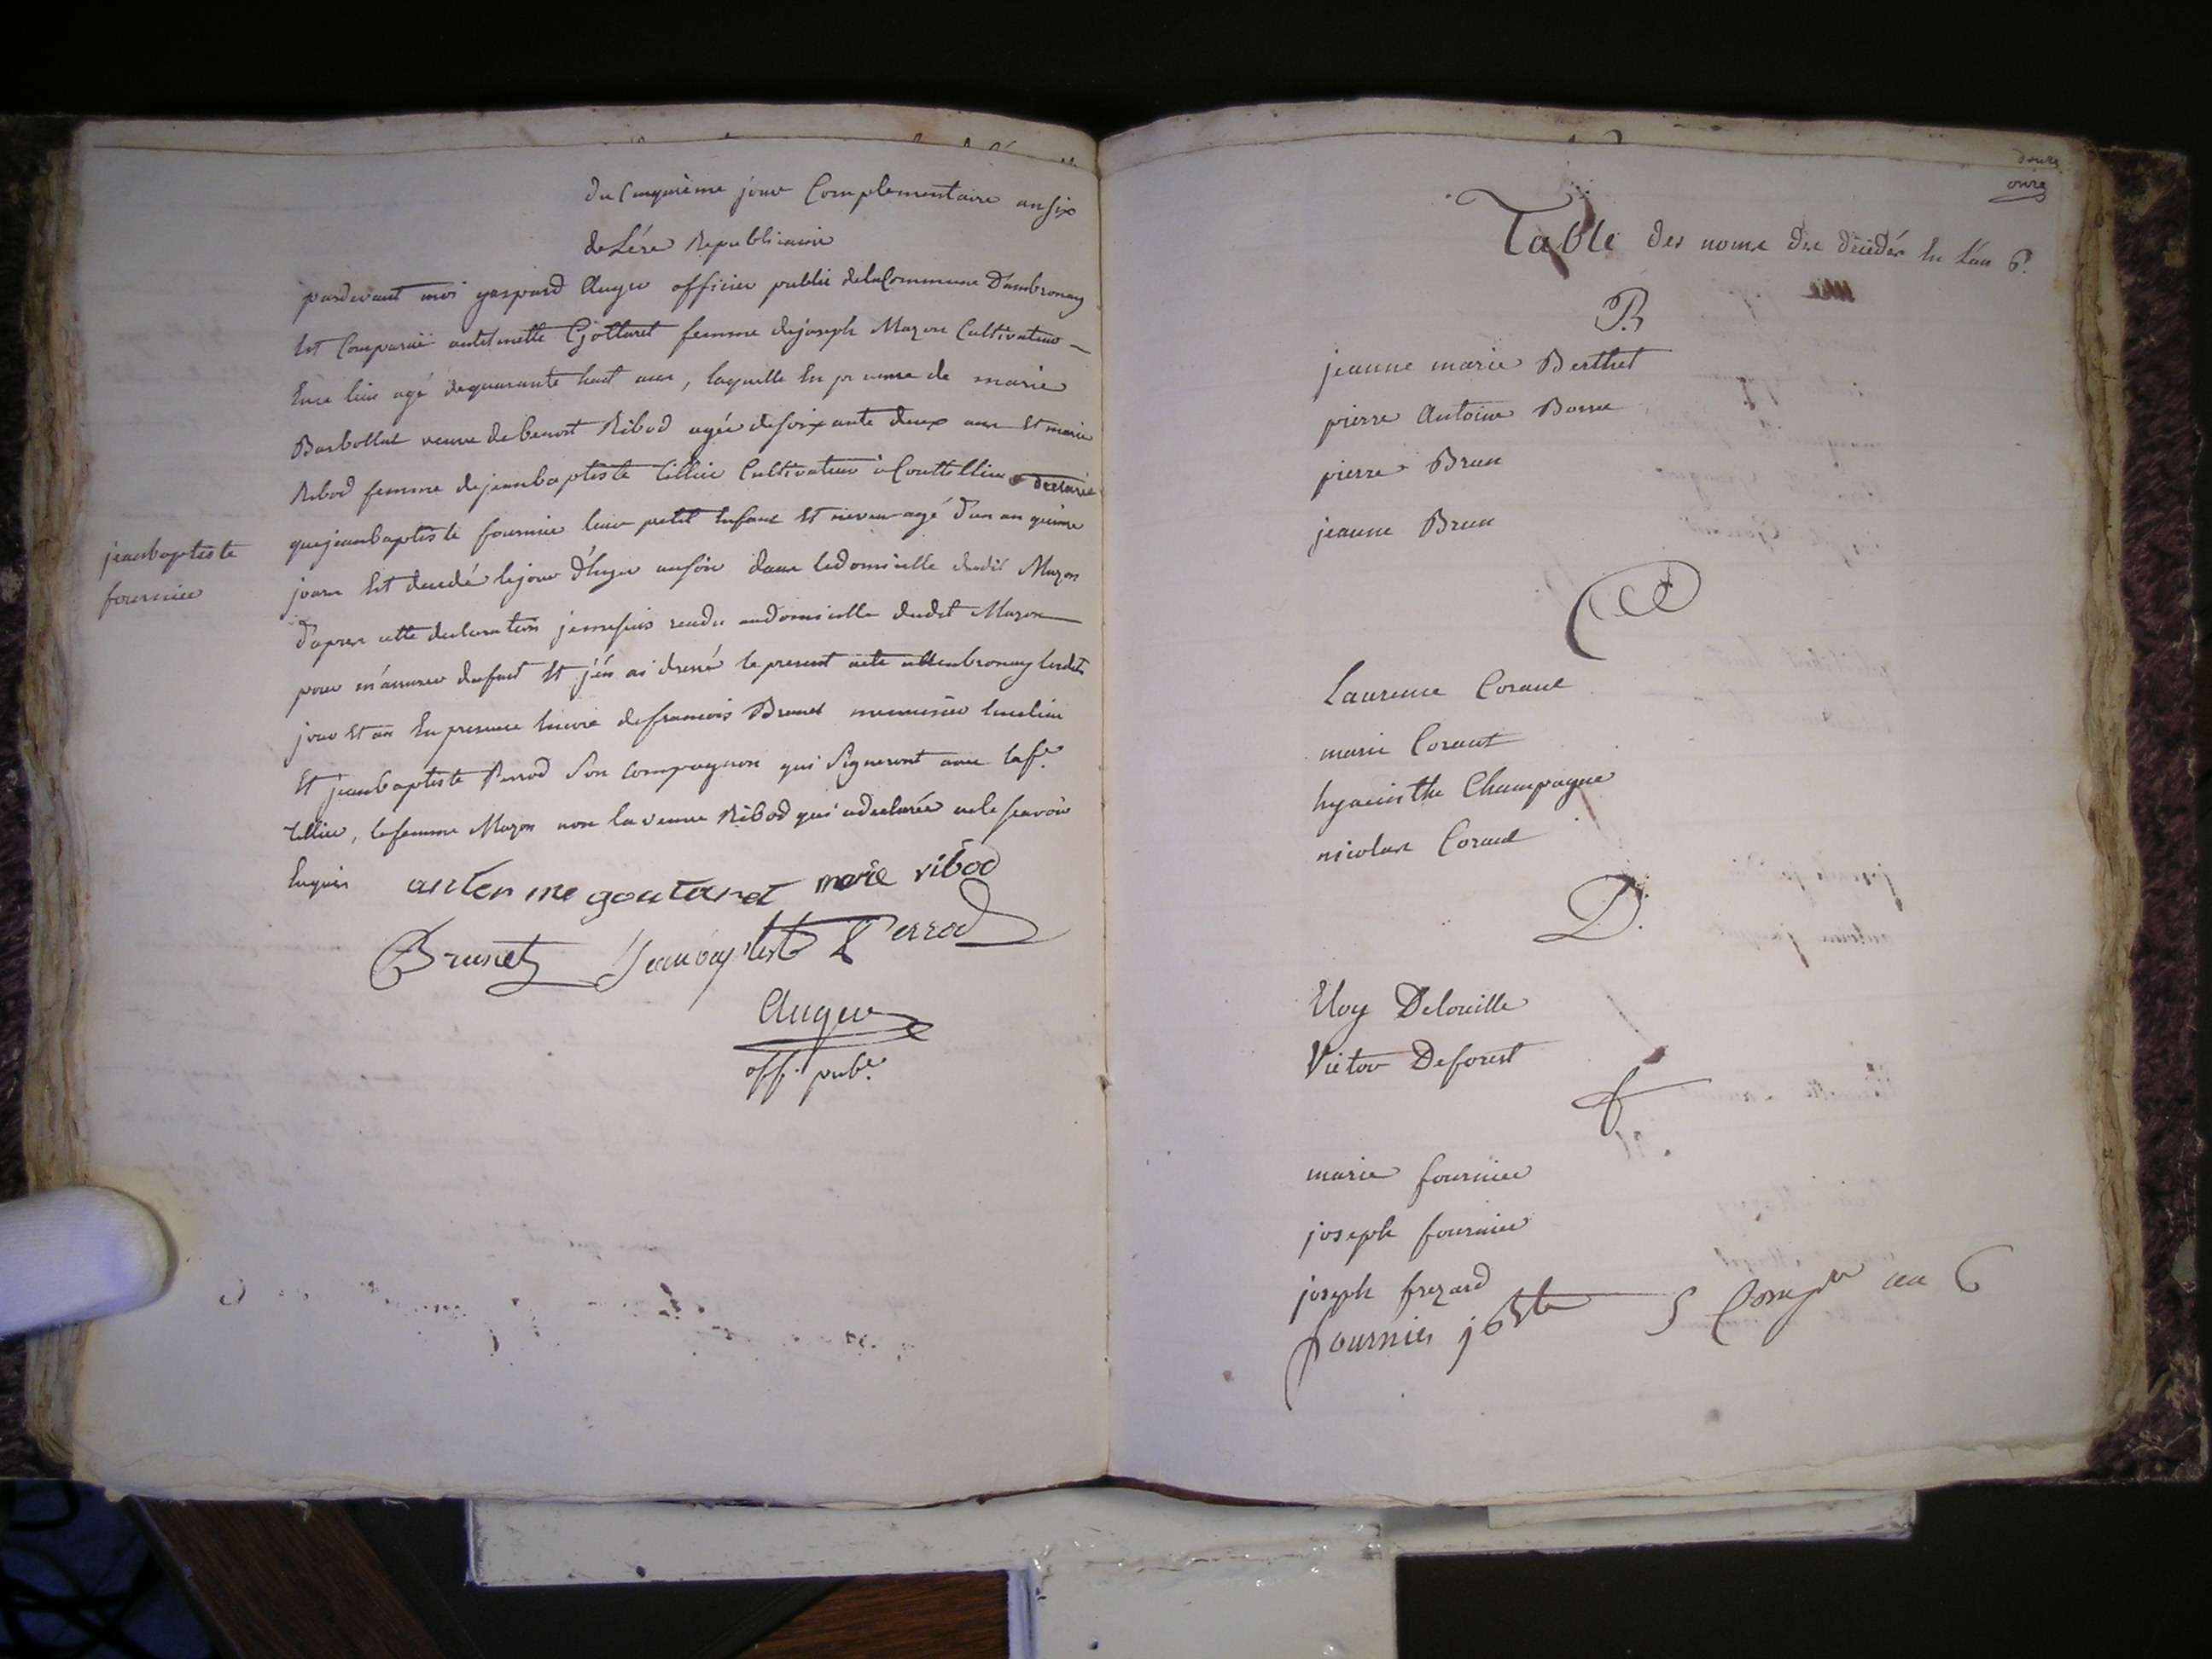 du Cinquième jour Complementaire an six
de L'ére Republicaine
pardevant moi gaspard Auger officier public de la Commune D'ambronay
Est Comparüe antoinette Gottaret femme de joseph Mazon Cultivateur
En ce lieu agé de quarante huit ans, laquelle En presence de marie
Barbollat veuve de benoit Ribod agée de soixante deux ans Et marie
Ribod femme de jeanbaptiste tillier Cultivateur à Couttellieu a declaré
que jeanbaptiste fournier leur petit Enfant Et neveu agé d'un an quinze
jours Est decedé le jour d'hyer au soir dans le domicille dudit Mazon
jeanbaptiste
fournier
d'apres cette declaration je me suis rendu au domicille dudit Mazon
pour m'assurer du fait Et j'en ai dressé le present acte a Ambronay lesdits
jour Et an En presence Encore de francois Brunet menuisier En ce lieu
Et jeanbaptiste Perrod son compagnon qui signeront avec la fe
tillier, la femme Mazon non la veuve Ribod qui a declarée ne le scavoir
Enquise
antoinne goutaret marie ribod
Brunet Jeanbaptiste Perrod
Auger
off. pube.
douze
onze
Table des noms des décédés En L'an 6.
B
jeanne marie Berthet
pierre Antoine Bonne
pierre Brun
jeanne Brun
C
Laurence Corant
marie Corant
hyacinthe Champagne
nicolas Corant
D.
Eloy Delouille
Victor Deforest
f
marie fournier
joseph fournier
joseph frezard
fournier jbste 5 Compre an 6